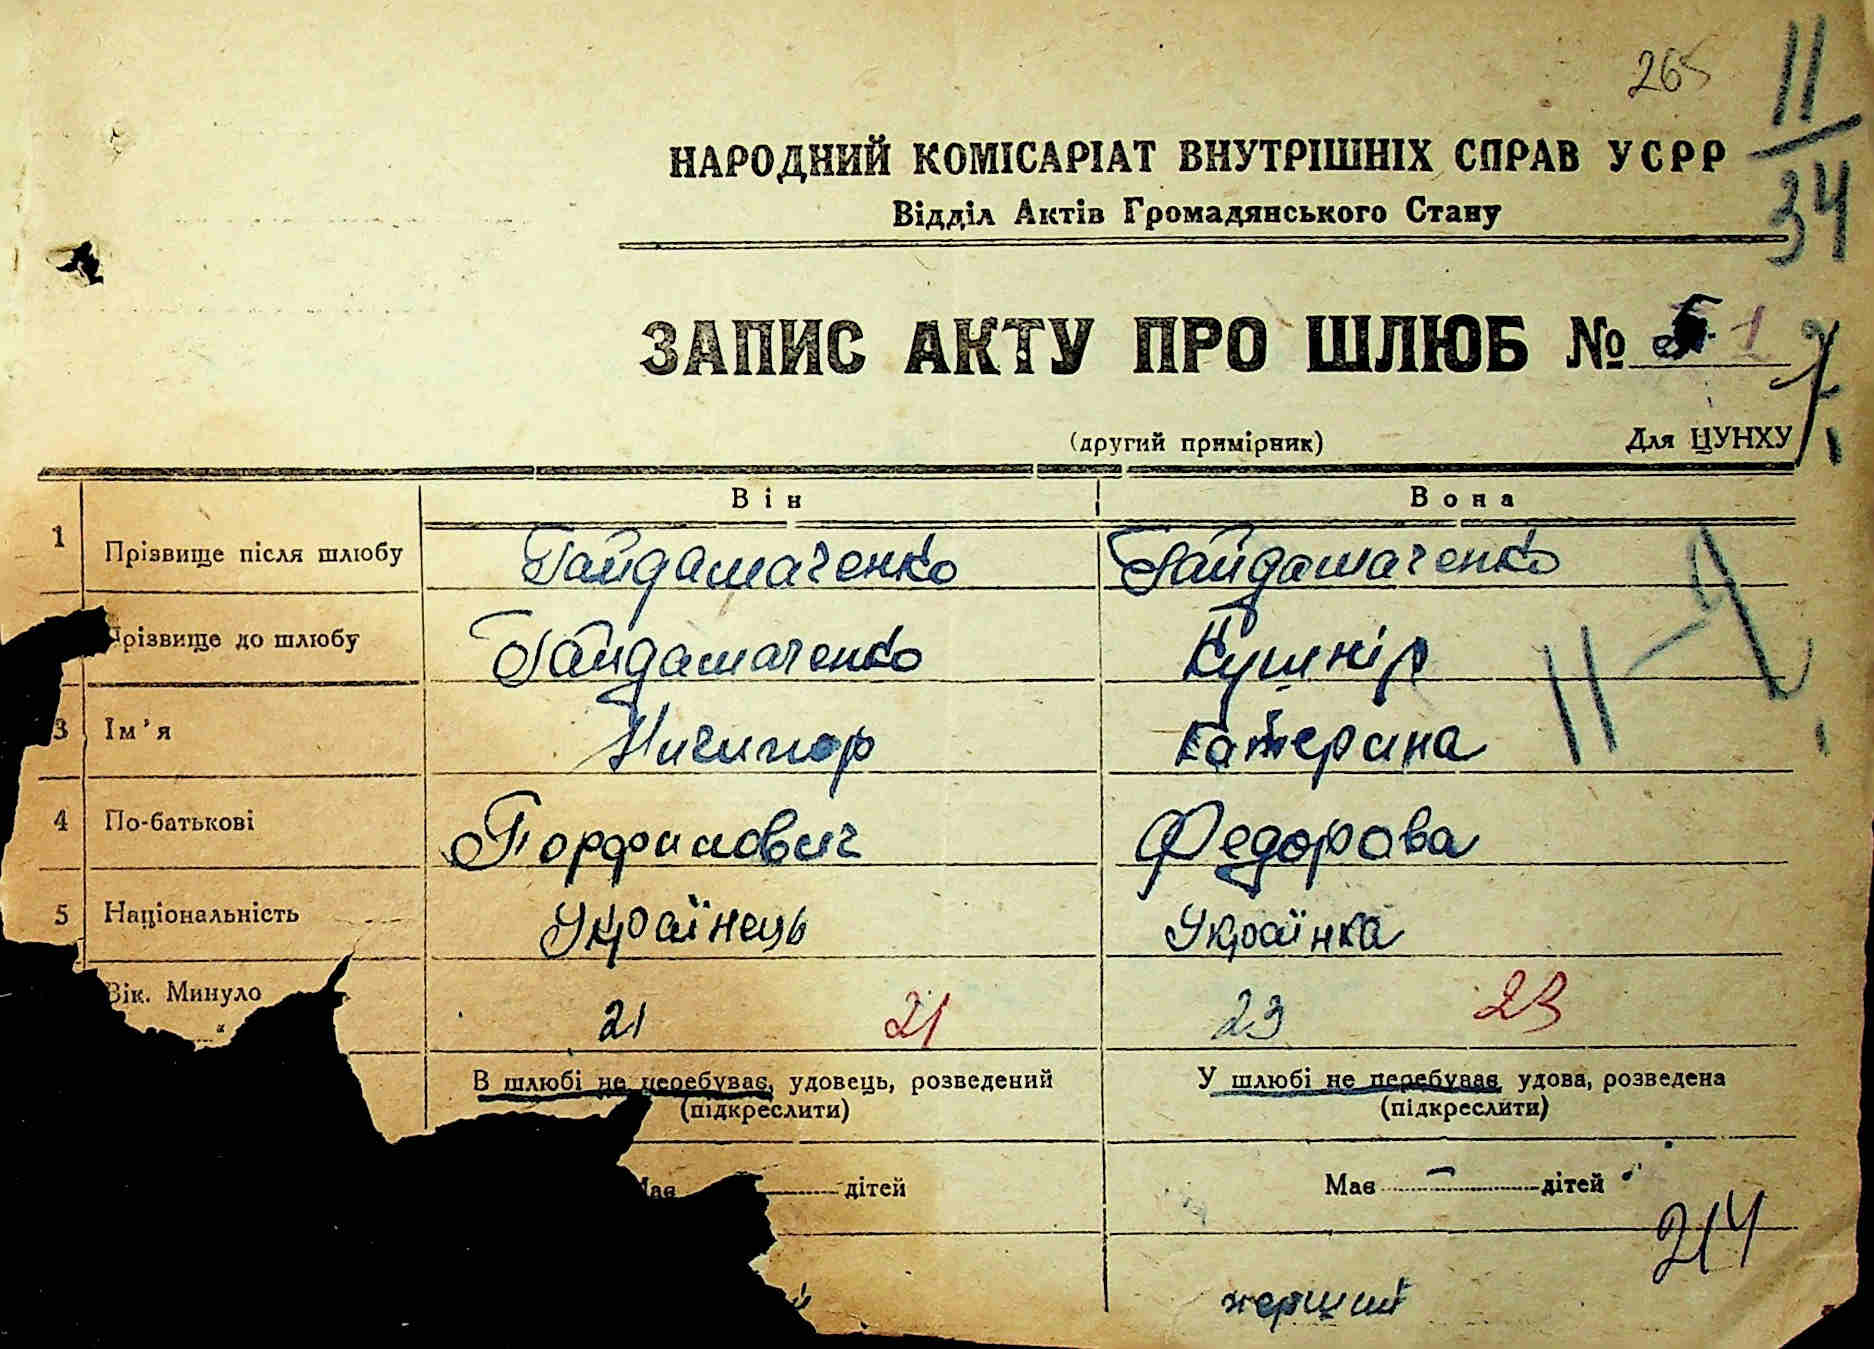 265
11
34
НАРОДНИЙ КОМІСАРІАТ ВНУТРІШНІХ СПРАВ УСРР
Відділ Актів Громадянського Стану
ЗАПИС АКТУ ПРО ШЛЮБ № 1
(другий примірник) Для ЦУНХУ
Він Вона
1 Прізвище після шлюбу Гайдамаченко Гайдамаченко
різвище до шлюбу Гайдамаченко Кушнір
3 Ім'я Ничипор Катерина
4 По-батькові Порфилович Федорова
5 Національність Українець Українка
Вік. Минуло 21 21 23 23
В шлюбі не перебуває, удовець, розведений У шлюбі не перебуває удова, розведена
(підкреслити) (підкреслити)
Має дітей Має — дітей
214
перший